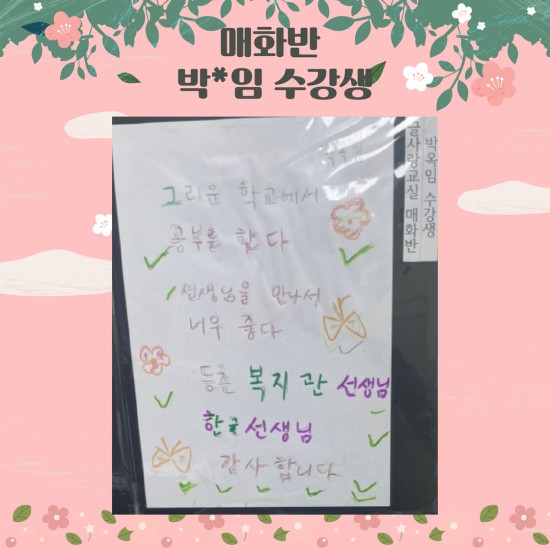 매화반
박*임 수강생
박옥임 수강생
글사랑교실 매화반
그리운 학교에서
공부를 합다
선생님을 만나서
너무 좋다
등촌 복지관 선생님
한글 선생님
감사합니다